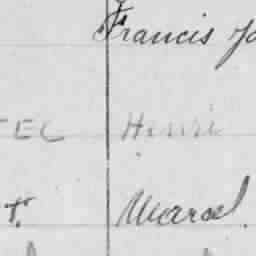 Francis
TEC Henri
t. Marcel.